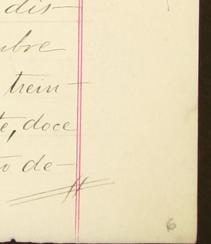 dis-
mbre
trein-
te, doce
to de-
6